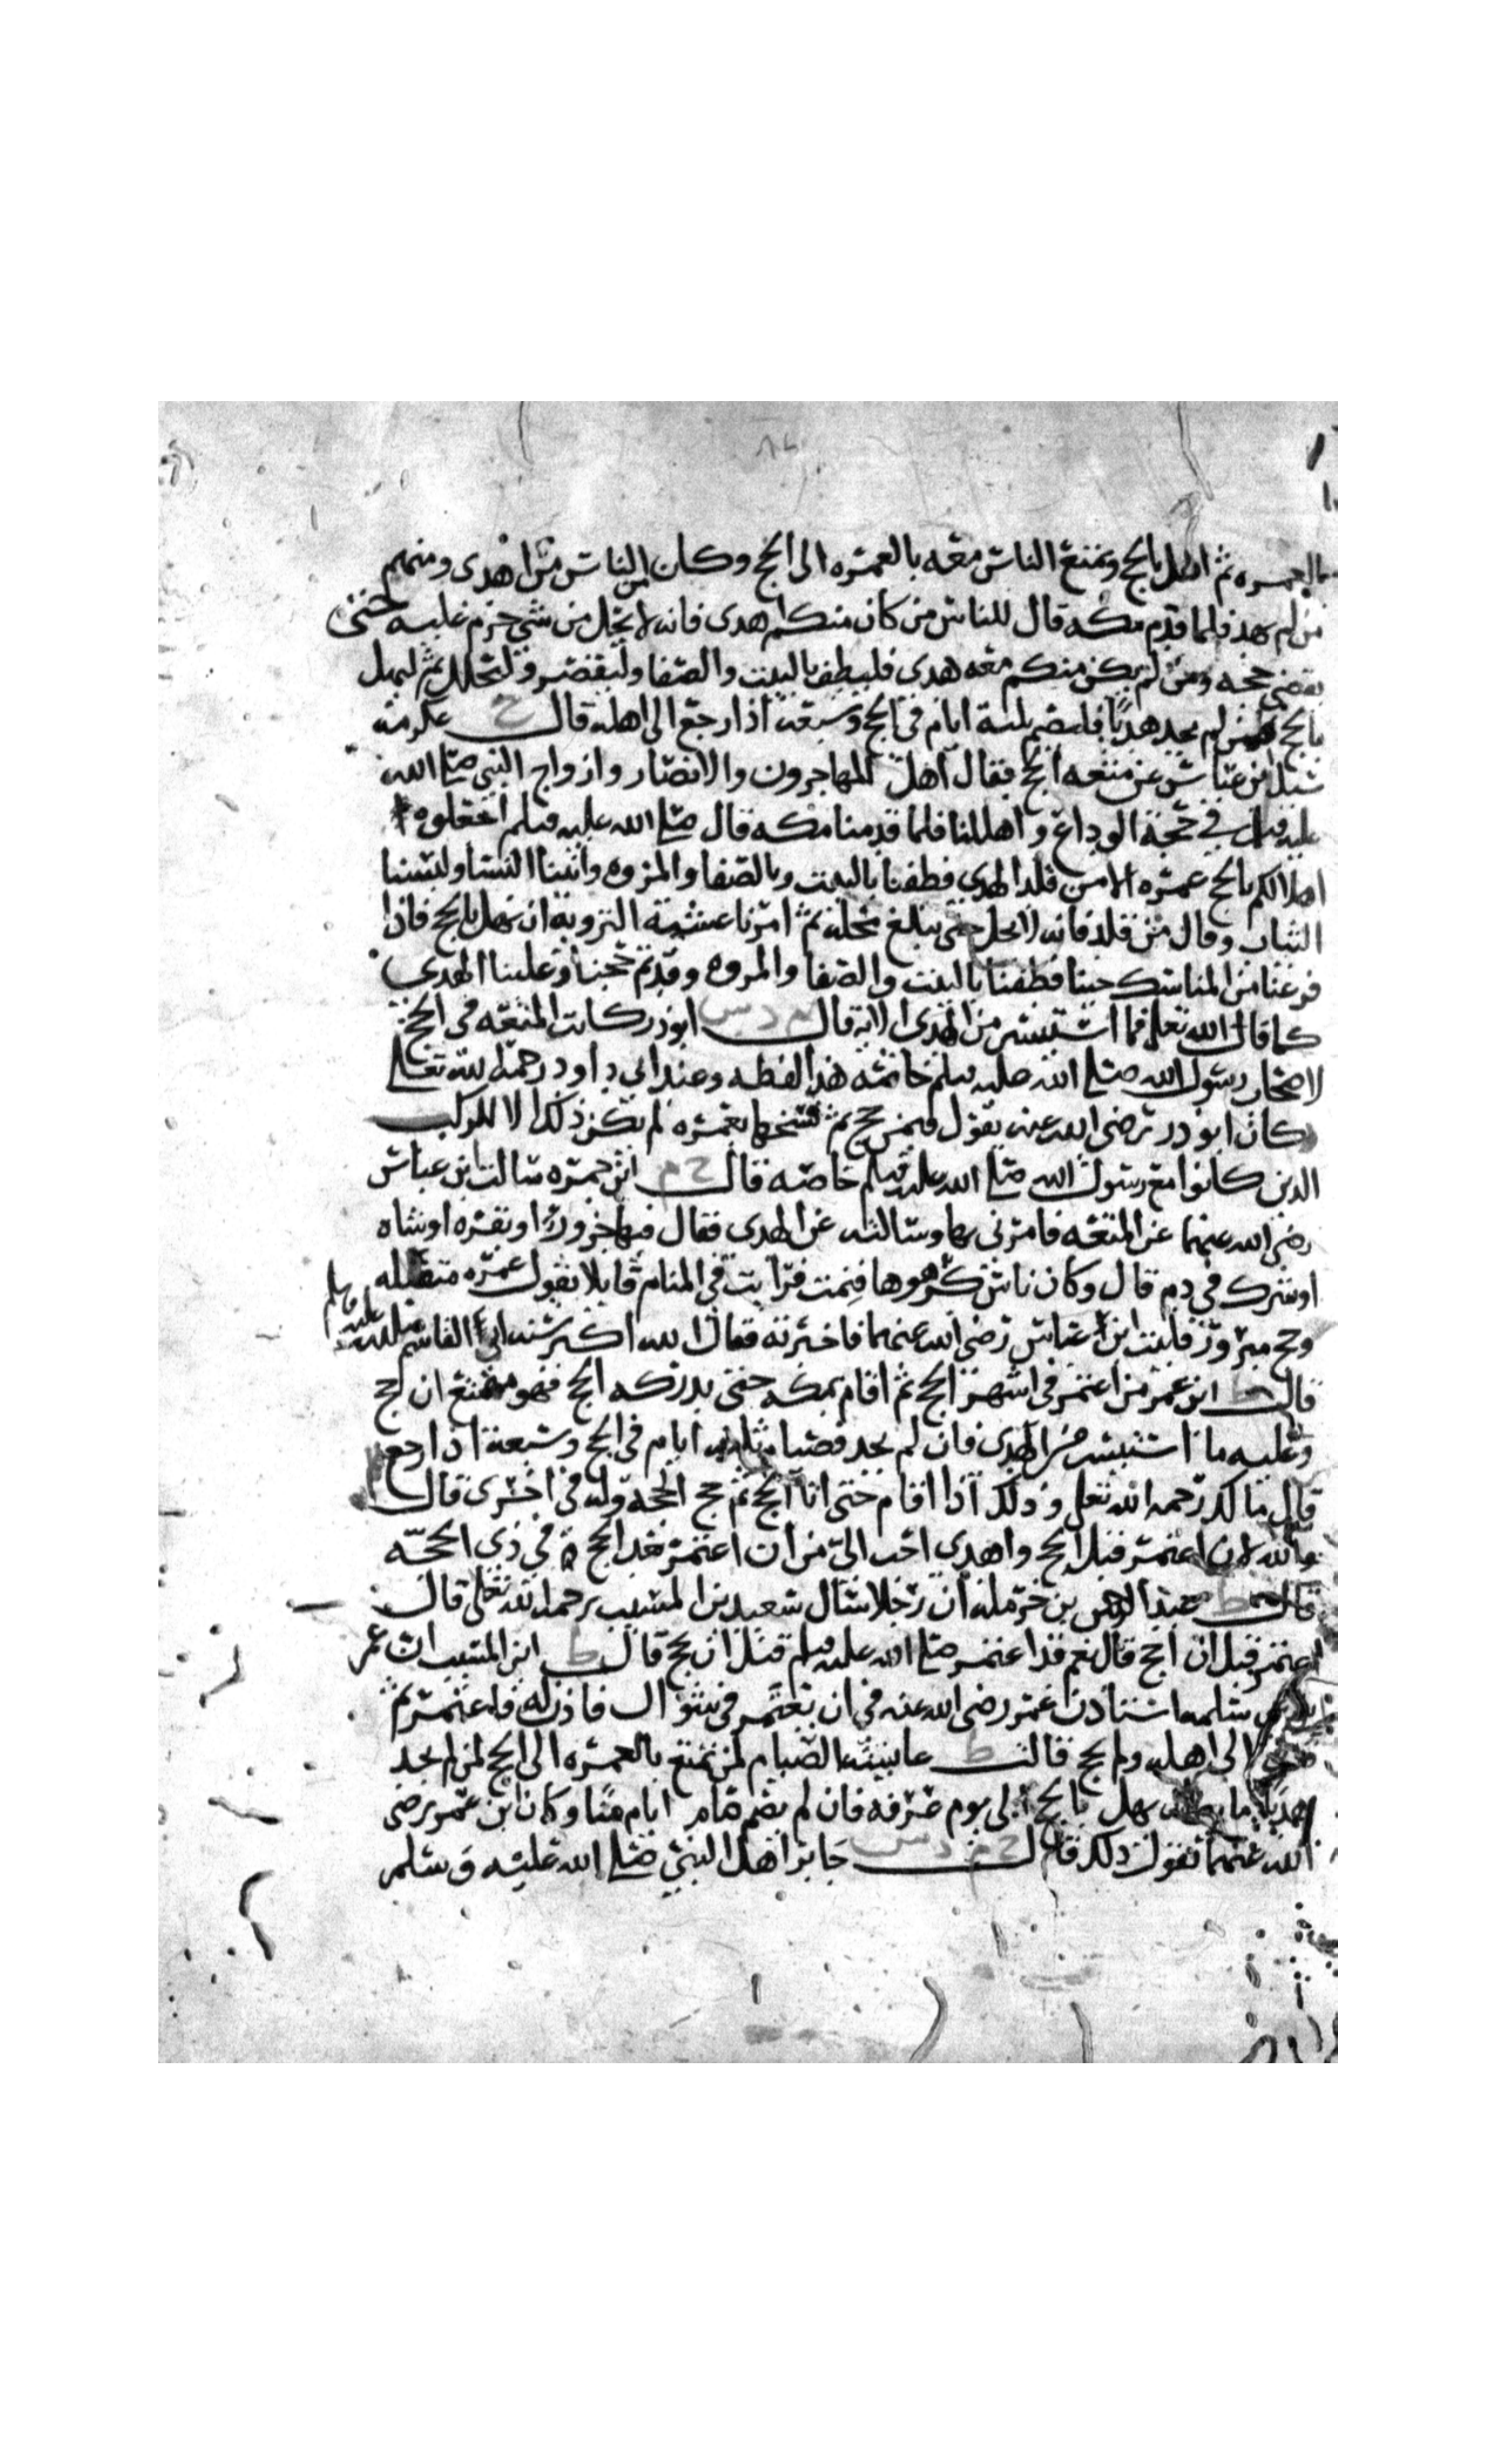 بالعمره ثم اهل بالحج وتمتع الناس معه بالعمره الى الحج وكان من الناس من اهدى ومنهم
من لم يهد فلما قدم مكه قال للناس من كان منكم اهدى فانه لا يحل من شي حرم عليه حتى
يقضي حجه ومن لم يكن منكم معه هدي فليطف بالبيت والصفا وليقصر وليتحلل ثم ليهل
بالحج فمن لم يجد هديا فليصم ثلثة ايام في الحج وسبعه اذا رجع الى اهله قال خ عكرمه
سئل ابن عباس عن متعه الحج فقال اهل المهاجرون والانصار وازواج النبي صلى الله
عليه وسلم في حجة الوداع واهللنا فلما قدمنا مكه قال صلى الله عليه وسلم اجعلوه
اهلالكم بالحج عمره الا من قلد الهدي فطفنا بالبيت وبالصفا والمروه واتينا النسا ولبسنا
الثياب وقال من قلد فانه لا يحل حتى يبلغ محله ثم امرنا عشية التروية ان نهل بالحج فاذا
فرغنا من المناسك جينا فطفنا بالبيت والصفا والمروه وقد تم حجنا وعلينا الهدي
كما قال الله تعالى فما استيسر من الهدي الاية قال م د س ابوذر كانت المتعه في الحج
لاصحاب رسول الله صلى الله عليه وسلم خاصه هذا لفظه وعند ابي داود رحمه لله تعالى
كان ابو ذر رضي الله عنه يقول فيمن حج ثم فسخها بعمره لم يكن ذلك الا للركب
الذين كانوا مع رسول الله صلى الله عليه وسلم خاصه قال خ م ابن جمره سالت ابن عباس
رضي الله عنهما عن المتعه فامرني بها وسالته عن الهدي فقال فيها جزورا او بقره او شاه
او شرك في دم قال وكان ناس كرهوها فنمت فرايت في المنام قايلا يقول عمره متقبله
وحج مبرور فاتيت ابن عباس رضي الله عنهما فاخبرته فقال الله اكبر سنه ابي القاسم صلى الله عليه وسلم
قال ط ابن عمر من اعتمر في اشهر الحج ثم اقام بمكه حتى يدركه الحج فهو متمتع ان حج
وعليه ما استيسر من الهدي فان لم يجد فصيام ثلثه ايام في الحج وسبعة اذا رجع
قال مالك رحمه الله تعالى وذلك اذا اقام حتى اتا الحج ثم حج وله في اخرى قال
والله لان اعتمر قبل الحج واهدي احب الي من ان اعتمر بعد الحج في ذي الحجه
قال ط عبد الرحمن بن حرمله ان رجلا سال سعيد بن المسيب رحمه الله تعالى قال
اعتمر قبل ان احج قال نعم قد اعتمر صلى الله عليه وسلم قبل ان يحج قال ط ابن المسيب ان عمر
بن ابي سلمه استاذن عمر رضي الله عنه في ان يعتمر في شوال فاذن له فاعتمر ثم
الى اهله ولم يحج قالت ط عايشه الصيام لمن تمتع بالعمره الى الحج لمن لم يجد
هديا ما بين ان يهل بالحج الى يوم عرفه فان لم يصم صام ايام منا وكان ابن عمر رضي
الله عنهما يقول ذلك قال خ م د س جابر اهل النبي صلى الله عليه وسلم